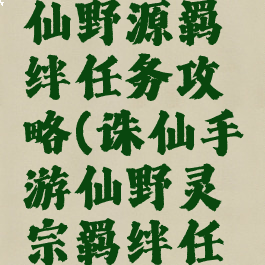 仙野源羁
绊任务攻
略(诛仙手
游仙野灵
宗羁绊任